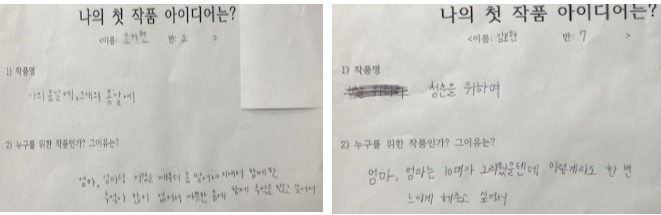 나의 첫 작품 아이디어는?
<이름: 반: 2 >
1) 작품명
나의 봄날에, 그대의 봄날에
2) 누구를 위한 작품인가? 그이유는?
엄마, 엄마랑 떨어져 지내서 함께한
추억이 많이 없어서 함께 추억을 만들고 싶어서
나의 첫 작품 아이디어는?
<이름: 김보현 반: 7 >
1) 작품명
청춘을 위하며
2) 누구를 위한 작품인가? 그이유는?
엄마, 엄마는 10대가 그리웠을텐데 이렇게라도 한 번
느끼게 해주고 싶어서